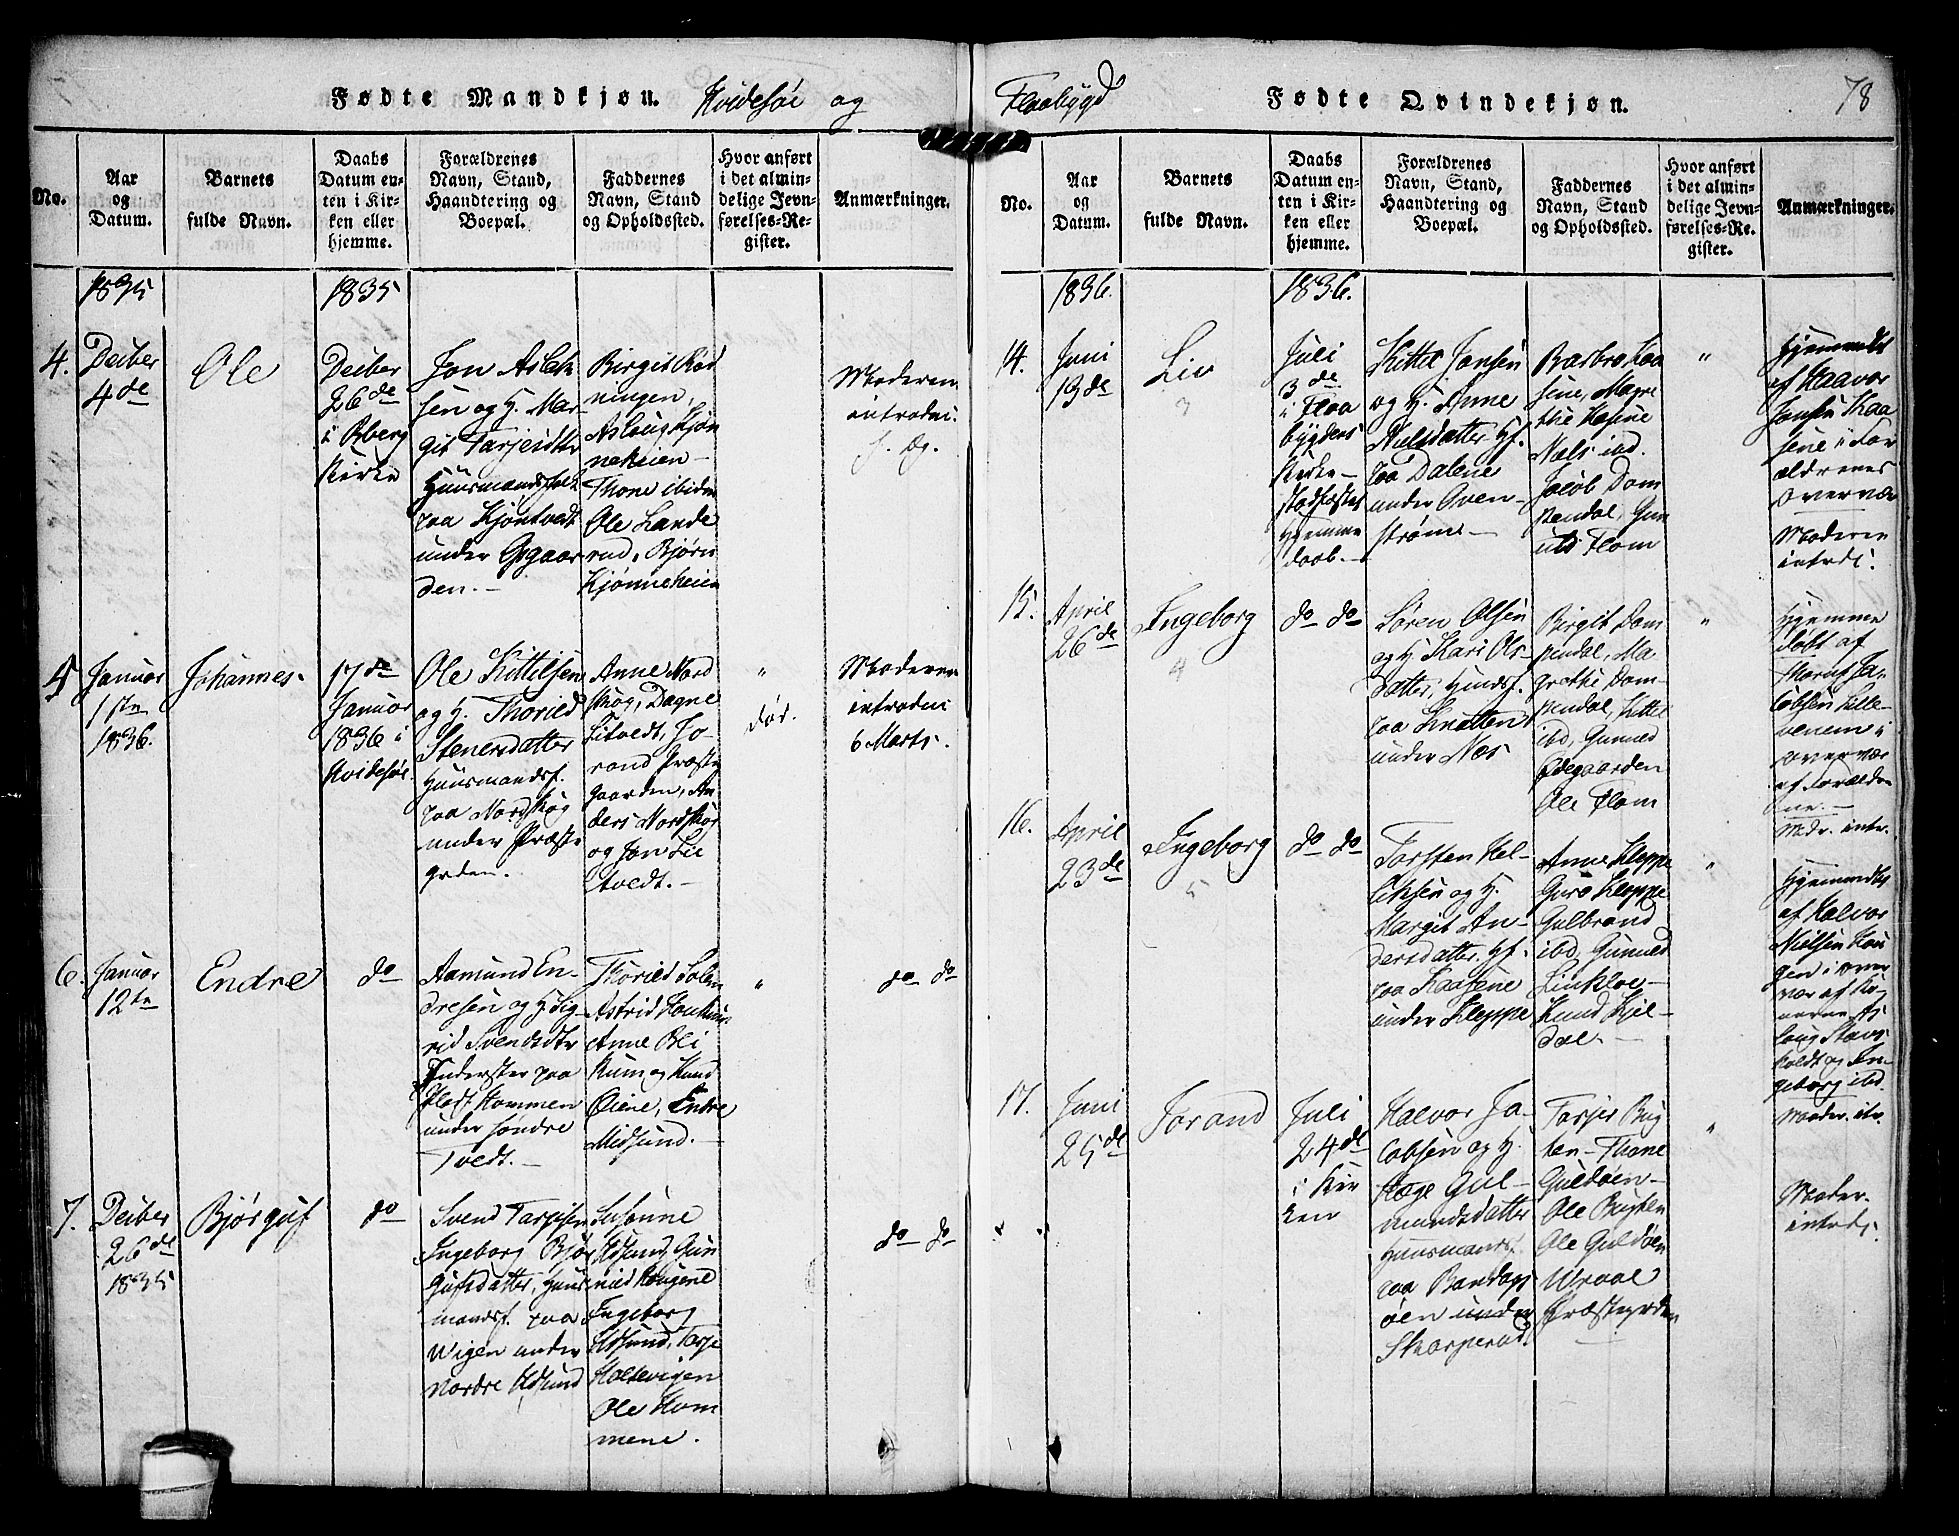 Fødte Mandkjøn. Hvidesøe og
No.
Aar
og
Datum.
Barnets
fulde Navn.
Daabs
Datum en-
ten i Kir-
ken eller
hjemme.
Forældrenes
Navn, Stand,
Haandtering og
Boepæl.
Faddernes
Navn, Stand
og Opholdssted.
Hvor anført
i det almin-
delige Jevn-
førelses-Re-
gister.
Anmærkninger.
1835
1835
4.
Deiber
4de
Ole
Deiber
26de
i Bberg
Kirke
Jon Aslak
sen og H. Mar-
git Tarjeidtr
Huusmandsfolk
paa Kjøntvedt
under Ggaar
den.
Birgit Rød
ningen,
Asloug Kjøn
neheien
Thone ibidm
Ole Lande
rud, Bjørn
Kjønneheien
Moderen
introdu.
5
Januar
1ste
1836.
Johannes
17de
Januar
1836 i
Hvidesøe
Ole Kittilsen
og H. Thoried
Stenersdatter
Huusmandsf.
paa Nordskog
under Præste
grden.
Anne Nord
skog, Dagne
Litvedt, Jo-
rand Præste
gaarden, An-
ders Nordskog
og Jon Lie
tvedt.
"
dør.
Moderen
introdui
6 Marts.
6.
Januar
12te
Endre
do
Aamund En-
dresen og H. Sig-
rid Svendsdtr
Inderster paa
Pladf. Hommen
under søndre
Tvedt.
Thoried
Astrid
Anne Bli
kum og Knud
Øiene, Endre
Midsund.
"
do do
7.
Deiber
26de
1835
Bjørguf
do
Svend Targiesen
Ingeborg Bjør
gufsdatter, Huus
mandsf. paa
Wigen under
nordre Idsund
Susanne
Idsund, Gun
nild Haugene
Ingeborg
Idsund, Tarje
Haltevigen
Ole Hom
mene.
do do
Flaabygd Fødte Qvindekjøn. 78
No.
Aar
og
Datum.
Barnets
fulde Navn.
Daabs
Datum en-
ten i Kir-
ken eller
hjemme.
Forældrenes
Navn, Stand,
Haandtering og
Boepæl.
Faddernes
Navn, Stand
og Opholdssted.
Hvor anført
i det almin-
delige Jevn-
førelses-Re-
gister.
Anmærkninger.
1836.
1836.
14.
Juni
13de
Liv
3
Juli
3de
i Flaa
bygdens
Kirke
stadfæstet
Hjemme
daab.
Kittel Jansen
og H. Anne
Nielsdatter Hf.
paa Dalene
under Oven-
strøme
Barbro Kaa
sene, Magre
the Kasine
Næs ibd.
Jacob Dom
pendal, Gun
uld Flom
"
Hjemmedt
af Haavor
Jansen Kaa
sene i For
ældrenes
Overvær
Moderen
introd.
15.
April
26de
Ingeborg
4
do do
Søren Olsen
og H. Kari Ols-
datter, Huusf.
paa Knatten
under Næs
Birgit Dom
pendal, Ma
grethe Dom-
pendal, Kittel
ibd, Gunned
Ødegaarden
Ole Flom
"
Hjemme
døbt af
Ja-
cobsen Lille-
venem i
overvær
af Foræld
ne.
Modr. intr.
16.
April
23de
Ingeborg
5
do do
Torsten Kel-
eksen og H.
Margit An-
dersdatter. Hf.
paa Kaasene
under Kleppe
Anne Kleppe
Guro Kleppe
Gulbrand
ibd, Gunned
Linkloe
Knud Kjel-
dal.
"
Hjemmedt
af Halvor
Nielsen Hau
gen i over
vær af Kog
nerne As
loug Stavs
holdt og In-
geborg ibd.
Moder. itr.
17.
Juni
25de
Jorand
Juli
24de
i Kir
ken
Halvor Ja-
cobsen og H.
Hæge Gul-
mundsdatter
Huusmandsf.
paa Bandags
øen under
Skarperud.
Tarjer Bug
ten Thone
Guldøen
Ole Bugten
Ole Guldøen
Wraal
Præstegrden
"
Moder.
introd.